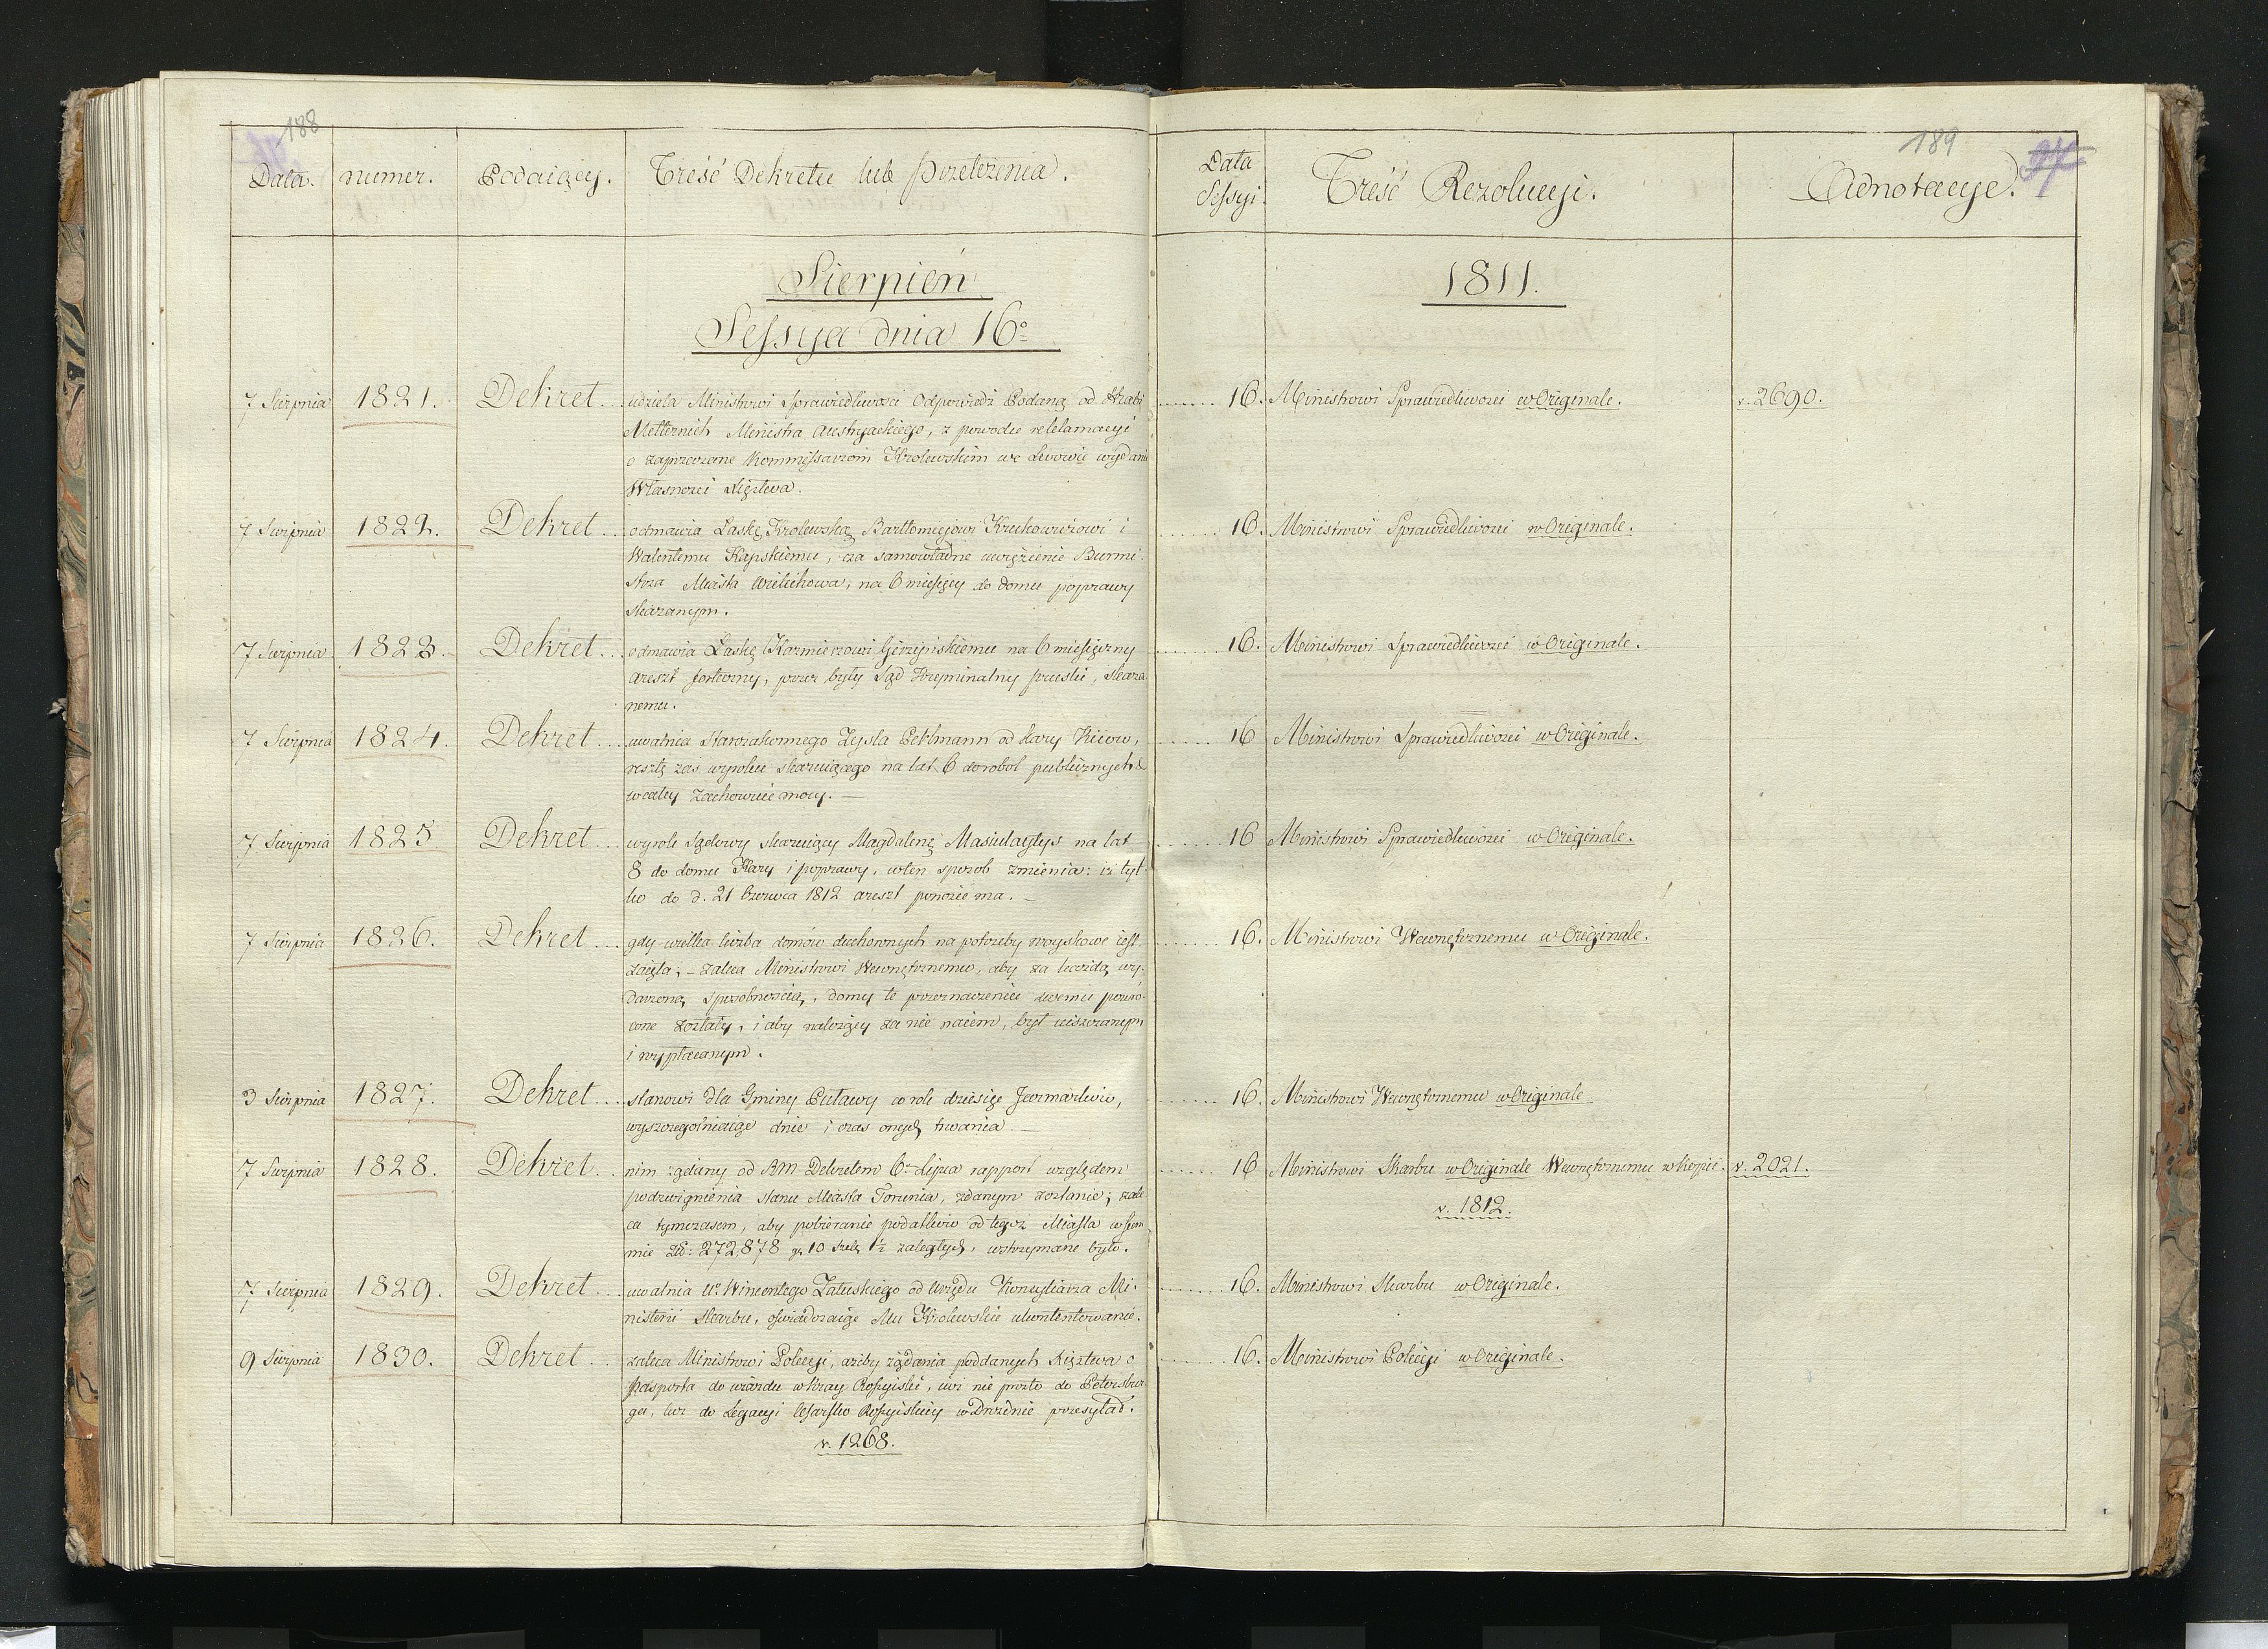 188
189
Data. numer. Podaiący. Treść Dekretu lub Przełożenia. Data Sessyi. Treść Rezolucyi. Adnotacye.
Sierpień 1811.
Sessya dnia 16º
7 Sierpnia 1821. Dekret udziela Ministrowi Sprawiedliwości Odpowiedź Podaną od Hrabi 16. Ministrowi Sprawiedliwości w Originale. v. 2690.
Metternich Ministra Austryackiego, z powodu reklamacyi
o zaprzeczone Kommissarzom Krolewskim we Lwowie wydanie
Własności Xięztwa.
7 Sierpnia 1822. Dekret odmawia Łaskę Krolewską Bartłomiejowi Krukowiezowi i 16. Ministrowi Sprawiedliwości w Originale.
Walentemu Kapskiemu, za samowładne uwięzienie Burmi-
strza Miasta Wielichowa, na 6 miesięcy do domu poprawy
skazanym.
7 Sierpnia 1823. Dekret odmawia Łaskę Kazmierzowi na 6 miesięczny 16. Ministrowi Sprawiedliwości w Originale.
areszt forteczny, przez były Sąd Kryminalny Pruski, skaza
nemu.
7 Sierpnia 1824. Dekret uwalnia Starozakonnego Zysla Pektmann od kary Kiiow, 16 Ministrowi Sprawiedliwości w Originale.
resztę zaś wyroku skazuiącego na lat 6 do robot publicznych
w całey zachowuie mocy. —
7 Sierpnia 1825 Dekret wyrok Sądowy skazuiący Magdalenę Masiulaytys na lat 16 Ministrowi Sprawiedliwości w Originale.
8 do domu Kary i poprawy, w ten sposob zmienia: iż tyl-
ko do d. 21 Czerwca 1812 areszt ponosić ma. —
7 Sierpnia 1826. Dekret gdy wielka liczba domów duchownych na potrzeby woyskowe iest 16. Ministrowi Wewnętrznemu w Originale.
zaięta; – zaleca Ministrowi Wewnętrznemu, aby za każdą wy-
darzoną sposobnością, domy te przeznaczeniu swemu powró-
cone zostały, i aby należący za nie naiem, był uiszczanym
i wypłacanym.
3 Sierpnia 1827. Dekret stanowi dla Gminy Puławy w rok dziesięć Jarmarkow, 16. Ministrowi Wewnętrznemu w Originale
wyszczegolniaiąc dnie i czas onych trwania —
7 Sierpnia 1828. Dekret nim żądany od RM Dekretem 6º Lipca rapport względem 16 Ministrowi Skarbu w Originale Wewnętrznemu w Kopii. v. 2021.
podzwignienia stanu Miasta Torunia, zdanym zostanie; zale v. 1812.
ca tymczasem, aby pobieranie podatkow od tegoż Miasta w Sum
mie Zł: 272,878 gr 10 1½ zaległych, wstrzymane było.
7 Sierpnia 1829. Dekret uwalnia Ur Wincentego Załuskiego od Urzędu Konsyliarza Mi- 16. Ministrowi Skarbu w Originale.
nisterii Skarbu, oświadczaiąc Mu Krolewskie ukontentowanie.
9 Sierpnia 1830. Dekret zaleca Ministrowi Policyi, ażeby żądania poddanych Xięztwa o 16. Ministrowi Policyi w Originale.
Pasporta do wiazdu w Kray Rossyiski, iuż nie prosto do Petersbur
ga, lecz do Legacyi Cesarsko Rossyiskiey w Dreznie przesyłał.
v. 1268.